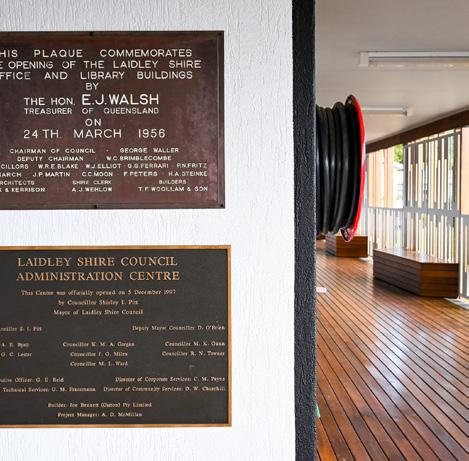 HIS PLAQUE COMMEMORATES
E OPENING OF THE LAIDLEY SHIRE
FFICE AND LIBRARY BUILDINGS
BY
THE HON. E.J.WALSH
TREASURER OF QUEENSLAND
ON
24TH. MARCH 1956
CHAIRMAN OF COUNCIL · GEORGE WALLER
DEPUTY CHAIRMAN · W.C.BRIMBLECOMBE
CILLORS · W.R.E.BLAKE · W.J.ELLIOT · G.G.FERRARI · P.N.FRITZ
EARCH · J.P.MARTIN · C.C.MOON · F.PETERS · H.A.STEINKE
RCHITECTS SHIRE CLERK BUILDERS
X & KERRISON A.J.WEHLOW T.F.WOOLLAM & SON
LAIDLEY SHIRE COUNCIL
ADMINISTRATION CENTRE
This Centre was officially opened on 5 December 1997
by Councillor Shirley I. Pitt
Mayor of Laidley Shire Council
uncillor S. I. Pitt Deputy Mayor Councillor D. O'Brien
A. E. Councillor K. M. A. Gorgan Councillor M. K. Gunn
G. C. Lester Councillor J. G. Miles Councillor R. N. Towner
Councillor M. L. Ward
cutive Officer: G. E. Reid Director of Corporate Services: C. M. Payne
Technical Services: G. M. Director of Community Services: D. W. Churchill
Builder: Joe Bennett (Gatton) Pty Limited
Project Manager: A. D. McMillan